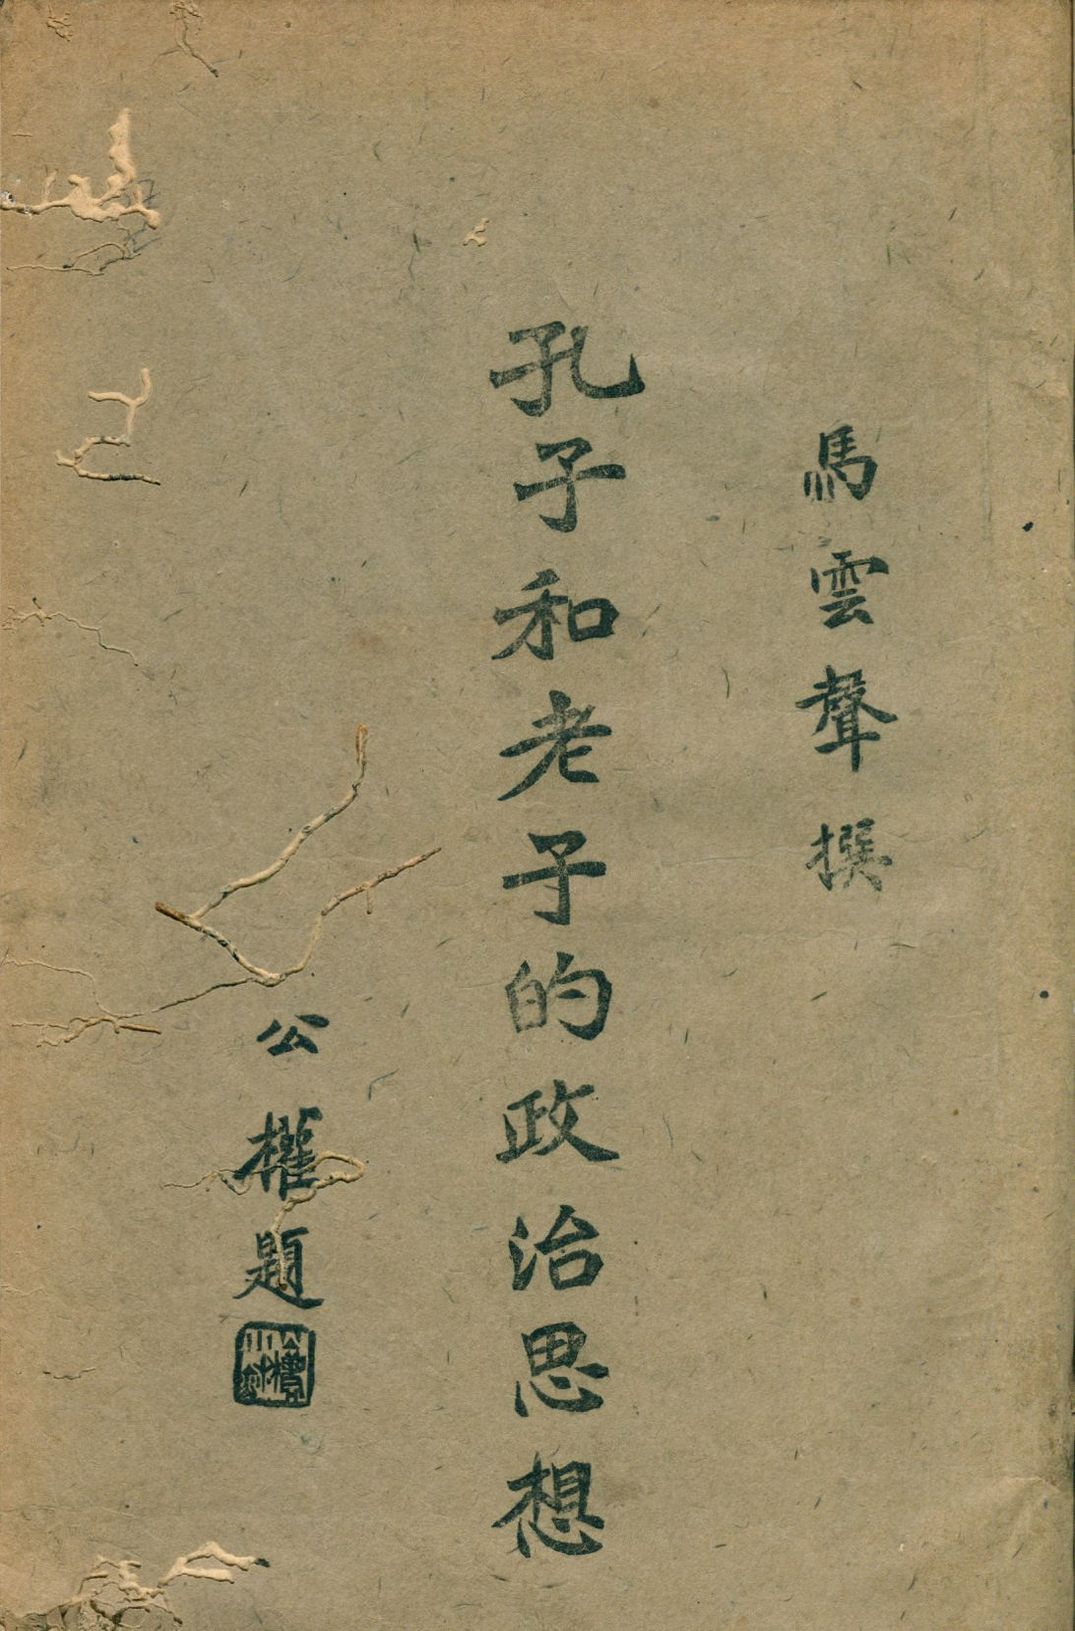 馬雲聲撰
孔子和老子的政治思想
公權題